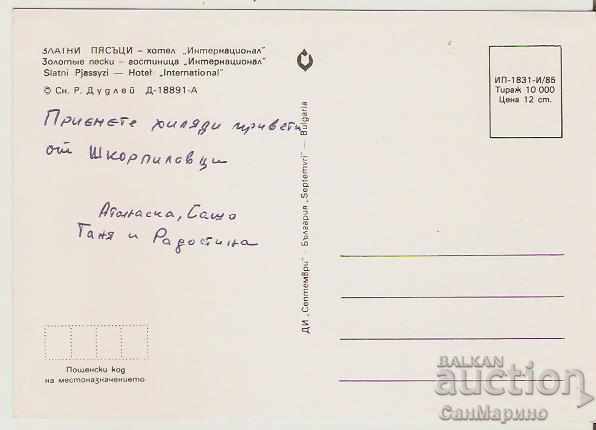 ЗЛАТНИ ПЯСЪЦИ – хотел „Интернационал"
Золотые пески – гостиница „Интернационал"
Slatni Pjassyzi — Hotel „International"
© Сн. Р. Дудлей Д-18891-А
Приемете хиляди привети
от Шкорпиловци
Атанаска, Сашо
Таня и Радостина
Пощенски код
на местоназначението
ДИ „Септември" – България „Septemvri" — Bulgaria
ИП-1831-И/86
Тираж 10 000
Цена 12 ст.
BALKAN
auction
СанМарино